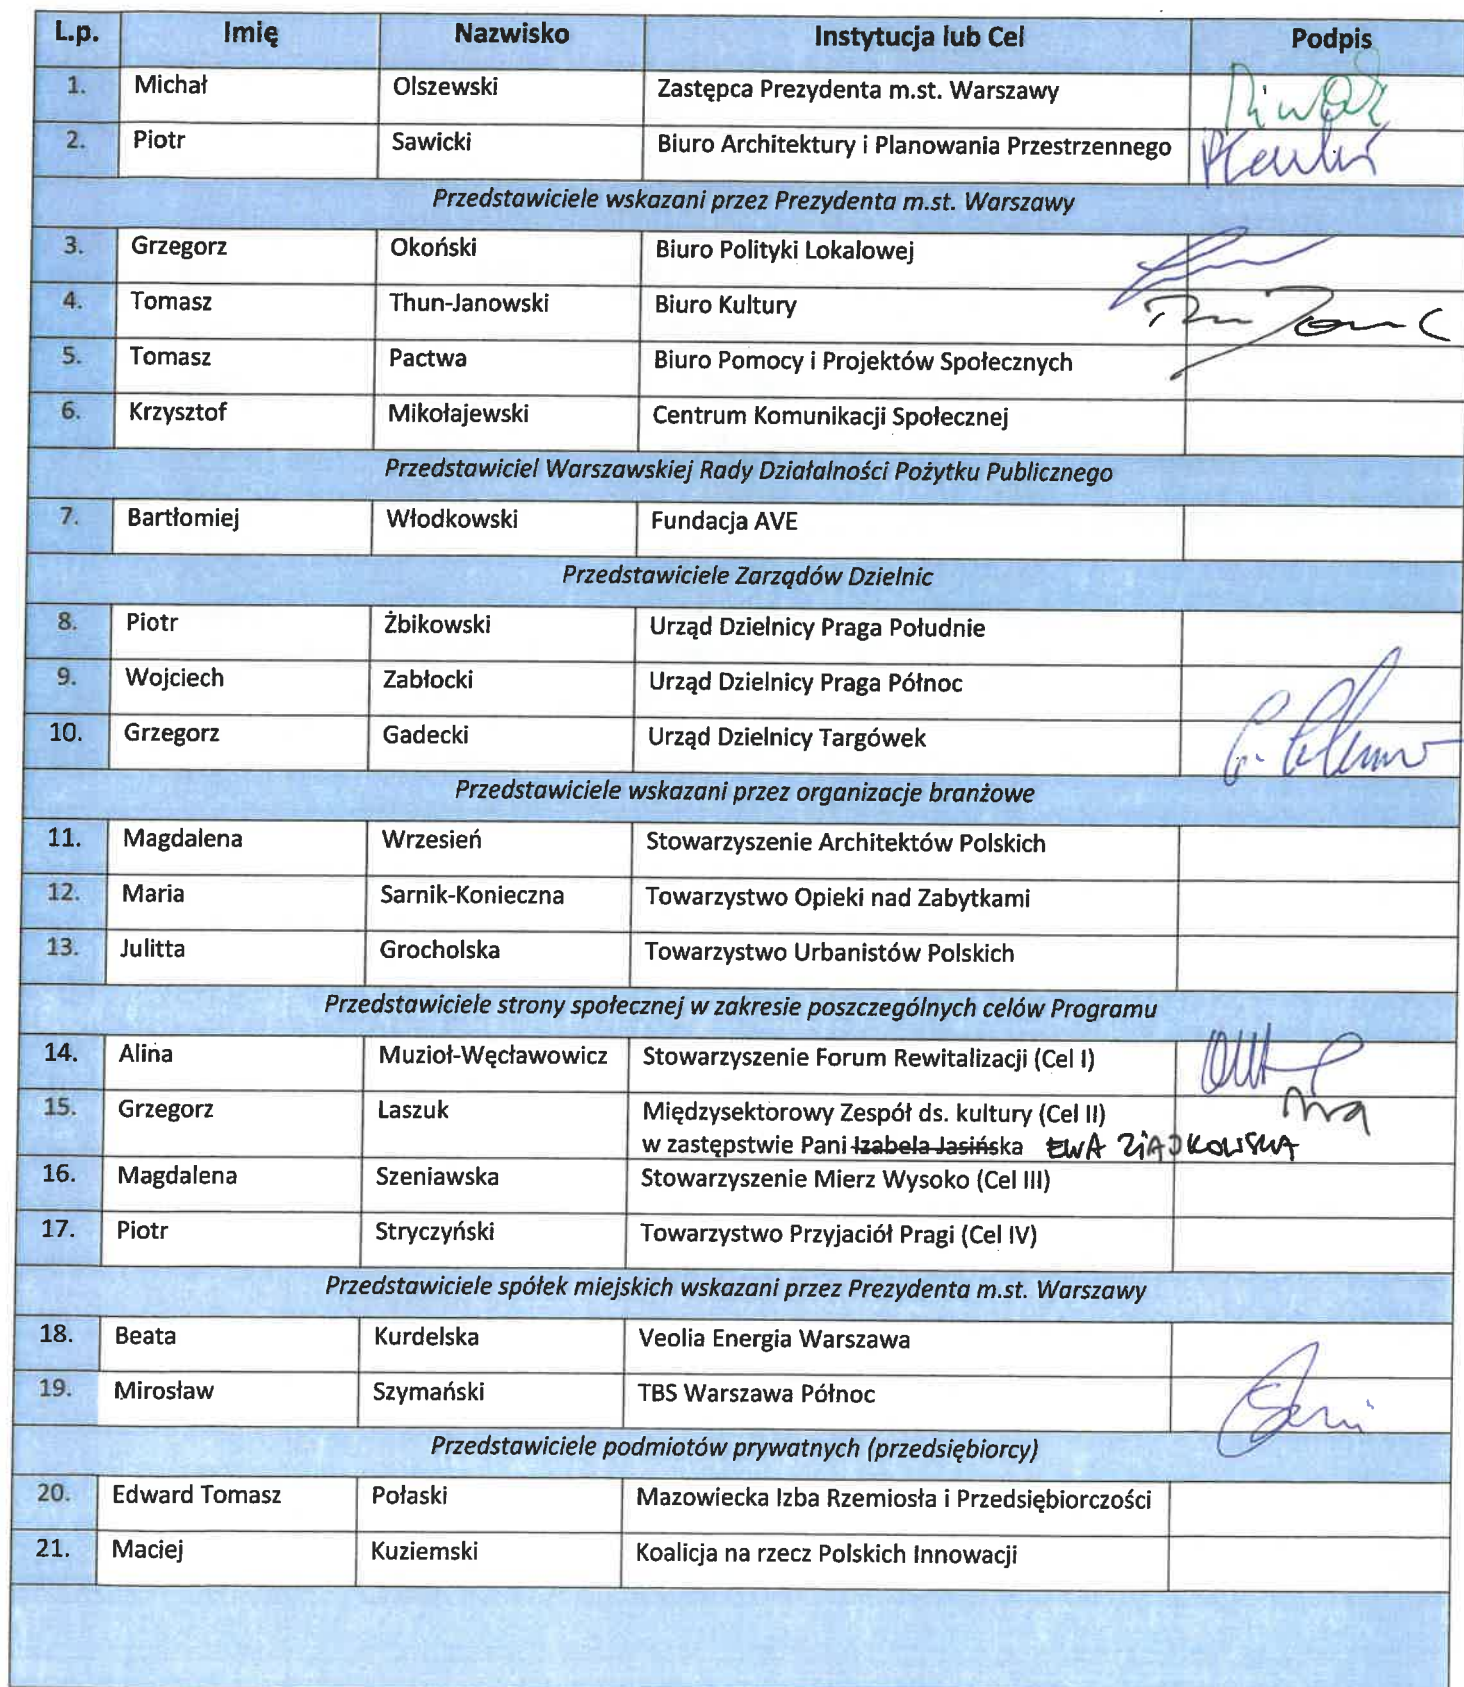 L.p. Imię Nazwisko Instytucja lub Cel Podpis
1. Michał Olszewski Zastępca Prezydenta m.st. Warszawy
2. Piotr Sawicki Biuro Architektury i Planowania Przestrzennego
Przedstawiciele wskazani przez Prezydenta m.st. Warszawy
3. Grzegorz Okoński Biuro Polityki Lokalowej
4. Tomasz Thun-Janowski Biuro Kultury
5. Tomasz Pactwa Biuro Pomocy i Projektów Społecznych
6. Krzysztof Mikołajewski Centrum Komunikacji Społecznej
Przedstawiciel Warszawskiej Rady Działalności Pożytku Publicznego
7. Bartłomiej Włodkowski Fundacja AVE
Przedstawiciele Zarządów Dzielnic
8. Piotr Żbikowski Urząd Dzielnicy Praga Południe
9. Wojciech Zabłocki Urząd Dzielnicy Praga Północ
10. Grzegorz Gadecki Urząd Dzielnicy Targówek
Przedstawiciele wskazani przez organizacje branżowe
11. Magdalena Wrzesień Stowarzyszenie Architektów Polskich
12. Maria Sarnik-Konieczna Towarzystwo Opieki nad Zabytkami
13. Julitta Grocholska Towarzystwo Urbanistów Polskich
Przedstawiciele strony społecznej w zakresie poszczególnych celów Programu
14. Alina Muzioł-Węcławowicz Stowarzyszenie Forum Rewitalizacji (Cel I)
15. Grzegorz Laszuk Międzysektorowy Zespół ds. kultury (Cel II)
w zastępstwie Pani Izabela Jasińska EWA
16. Magdalena Szeniawska Stowarzyszenie Mierz Wysoko (Cel III)
17. Piotr Stryczyński Towarzystwo Przyjaciół Pragi (Cel IV)
Przedstawiciele spółek miejskich wskazani przez Prezydenta m.st. Warszawy
18. Beata Kurdelska Veolia Energia Warszawa
19. Mirosław Szymański TBS Warszawa Północ
Przedstawiciele podmiotów prywatnych (przedsiębiorcy)
20. Edward Tomasz Połaski Mazowiecka Izba Rzemiosła i Przedsiębiorczości
21. Maciej Kuziemski Koalicja na rzecz Polskich Innowacji